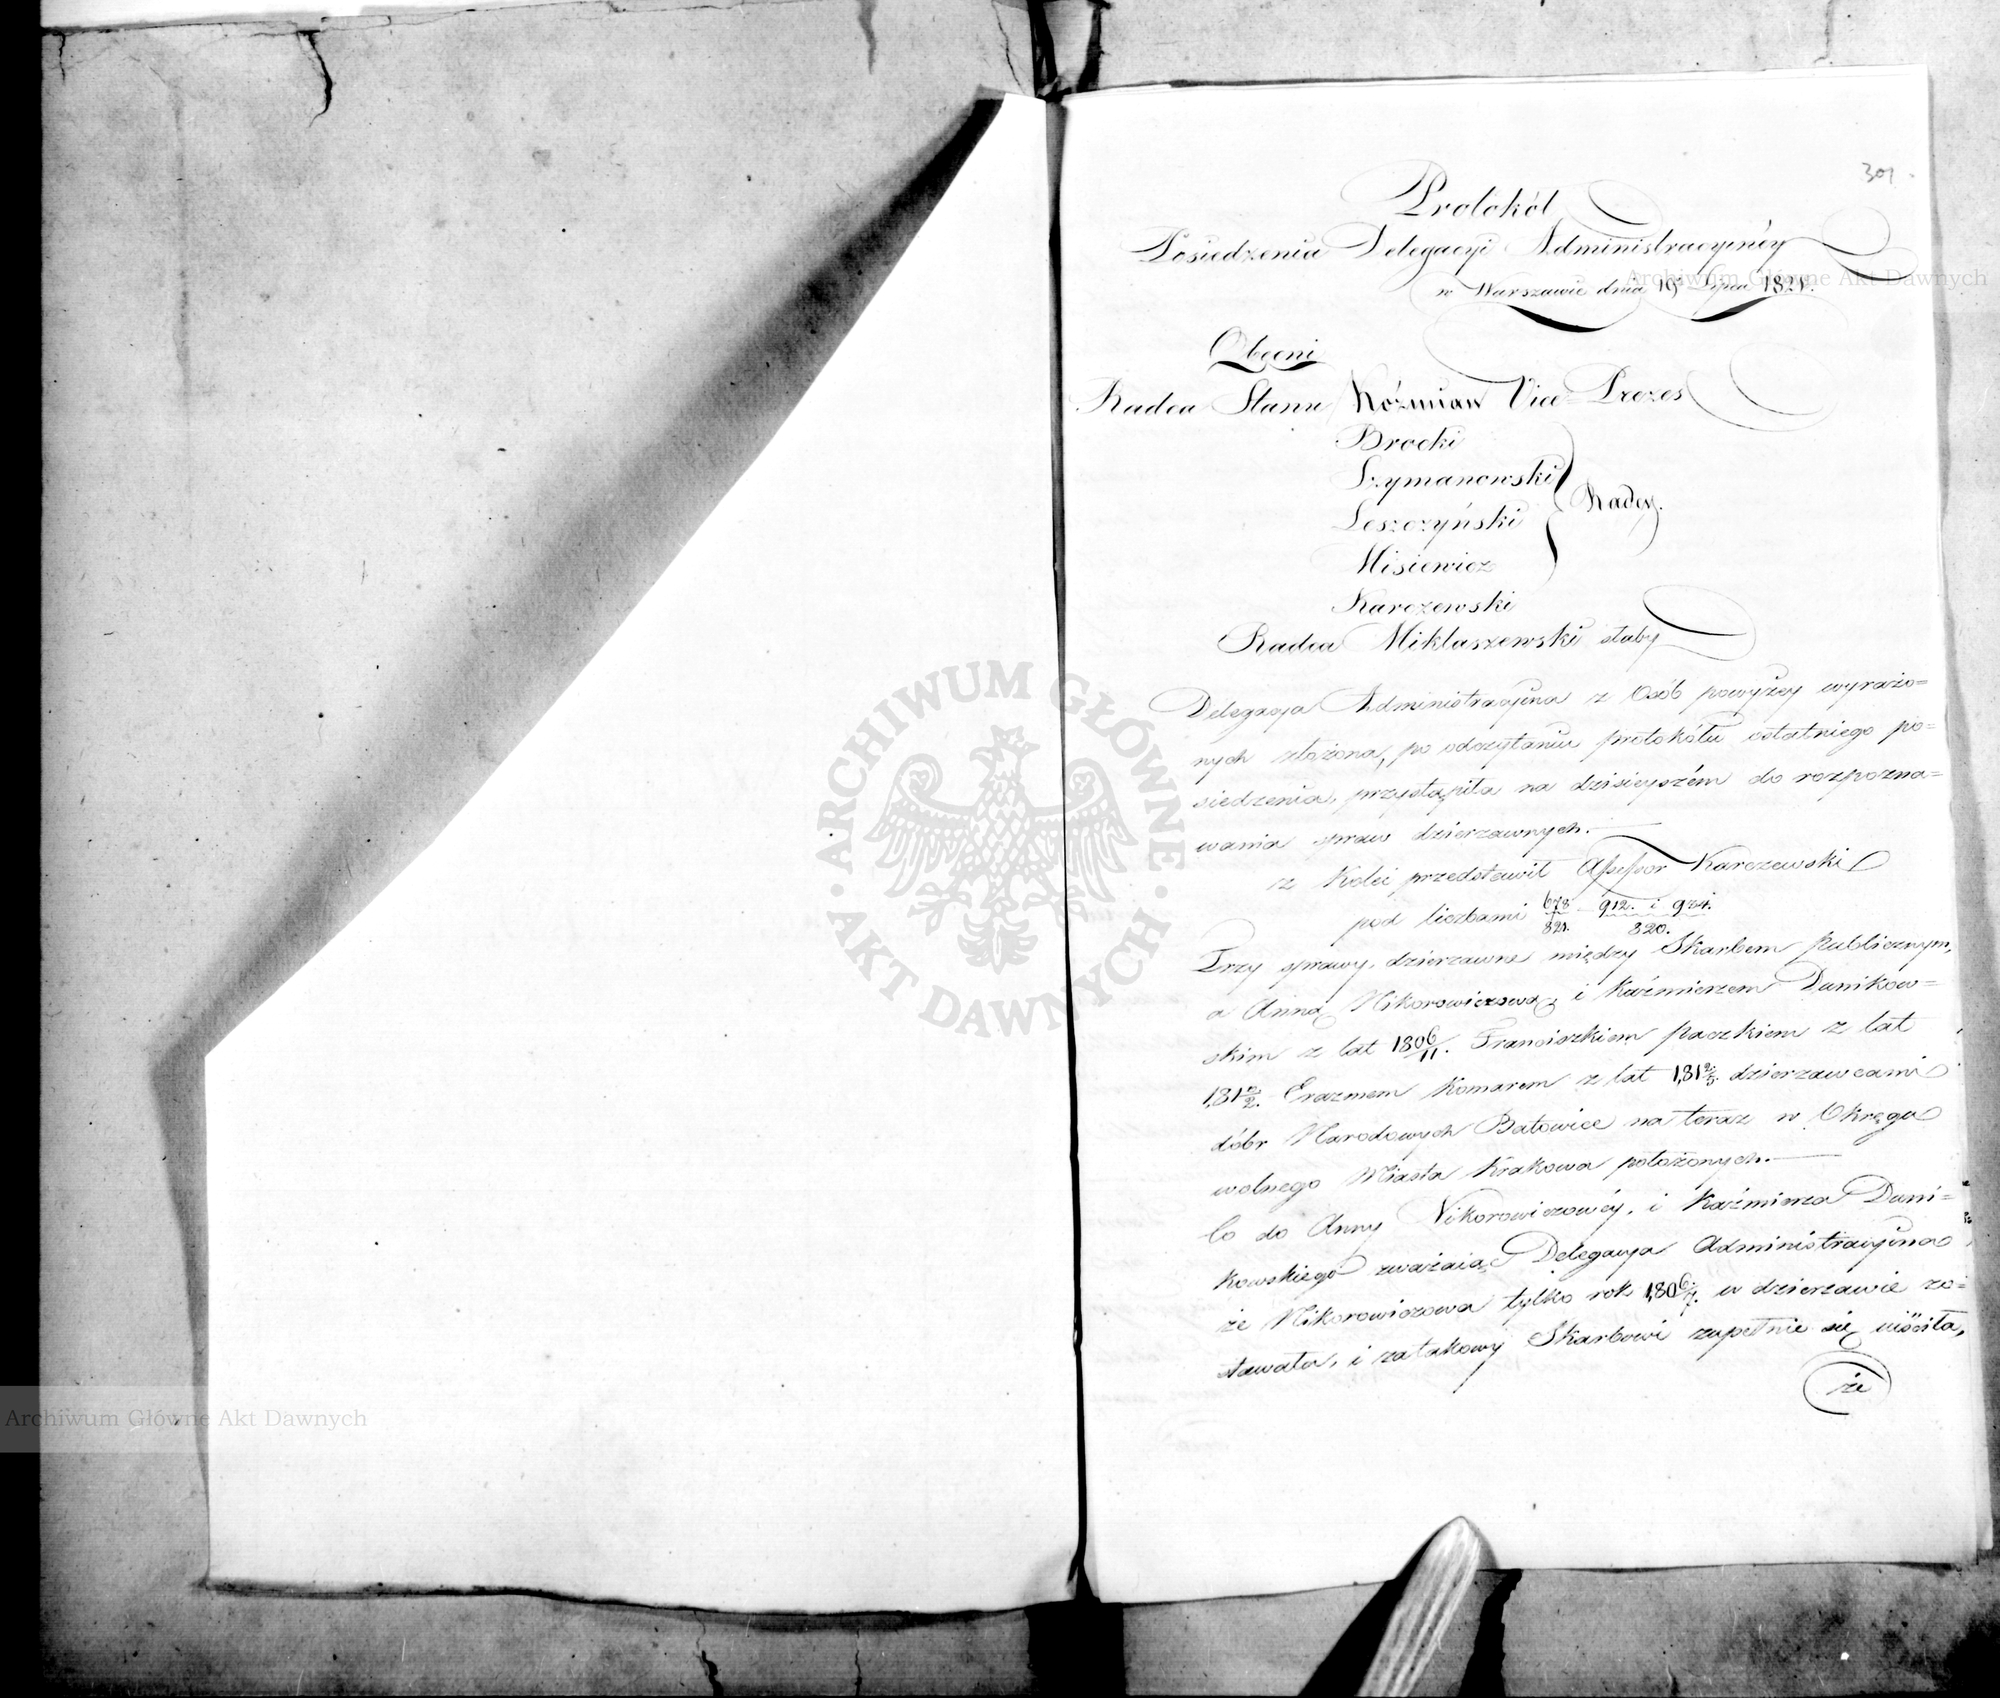 301.
Protokół
Posiedzenia Delegacyi Administracyinéy
w Warszawie dnia 19 Lipca 1821.
Obecni
Radca Stanu Koźmian Vice Prezes
Brocki
Szymanowski
Leszczyński
Misiewicz
Radcy.
Karczewski
Radca Miklaszewski słaby
Delegacya Administracyina z Osób powyżey wyrażo=
nych złożona, po odczytaniu protokółu ostatniego po=
siedzenia, przystąpiła na dzisieyszém do rozpozna=
wania spraw dzierzawnych.
z Kolei przedstawił Assessor Karczewski
pod liczbami 678/821. 912. i 924./820.
Trzy sprawy dzierzawne między Skarbem publicznym,
a Anną Nikorowiczową i Kaźmierzem Dunikow=
skim z lat 1806/11. Franciszkiem paczkiem z lat
181½. Erazmem Komarem z lat 1812/5. dzierzawcami
dóbr Narodowych Batowice na teraz w Okręgu
wolnego Miasta Krakowa położonych.
Co do Anny Nikorowiczowéy, i Kaźmierza Duni=
kowskiego zważaiąc Delegacya Administracyina
że Nikorowiczowa tylko rok 1806/7. w dzierzawie zo=
stawała, i zatakowy Skarbowi zupełnie się uiściła,
że
ARCHIWUM GŁÓWNE AKT DAWNYCH
Archiwum Główne Akt Dawnych
Archiwum Główne Akt Dawnych